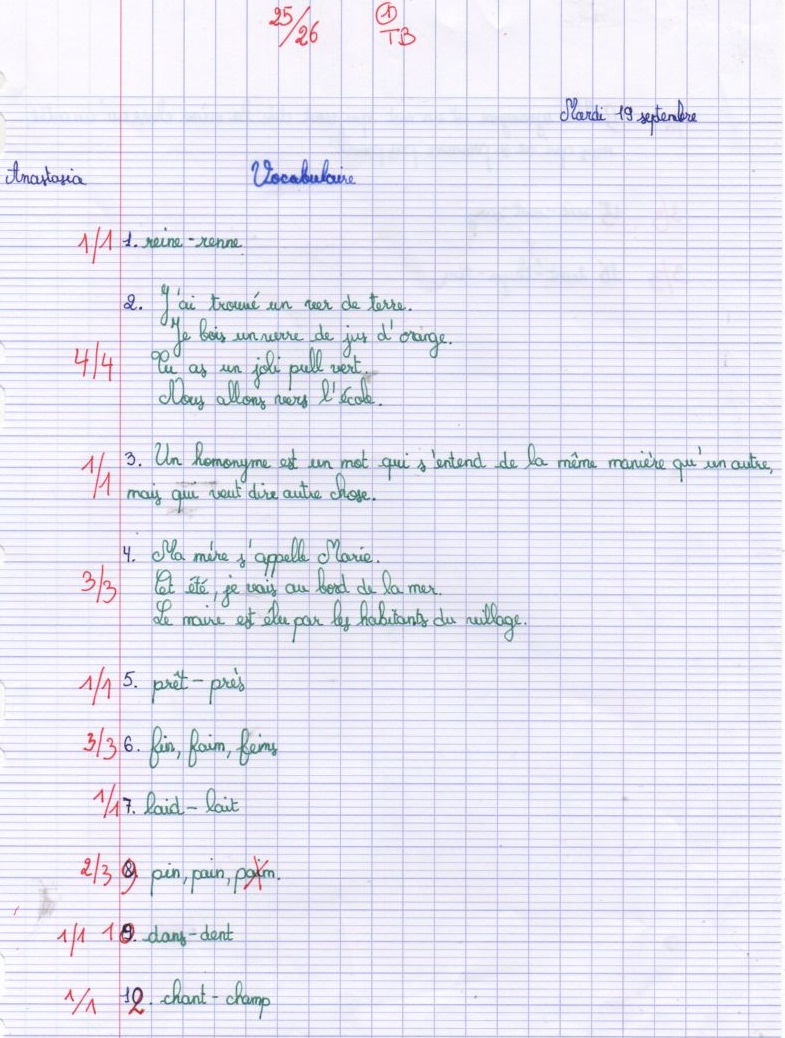 25/26 1 TB
Mardi 19 septembre
Anastasia Vocabulaire
1/1 1. reine - renne
2. J'ai trouvé un ver de terre.
Je bois un verre de jus d'orange.
4/4 Tu as un joli pull vert.
Nous allons vers l'école.
1/1 3. Un homonyme est un mot qui s'entend de la même manière qu'un autre,
mais qui veut dire autre chose.
4. Ma mère s'appelle Marie.
3/3 Et été, je vais au bord de la mer.
Le maire est élu par les habitants du village.
1/1 5. prêt - près
3/3 6. fin, faim, feins
1/1 7. laid - lait
2/3 9 pin, pain, paim.
1/1 10. dans - dent
1/1 12. chant - champ